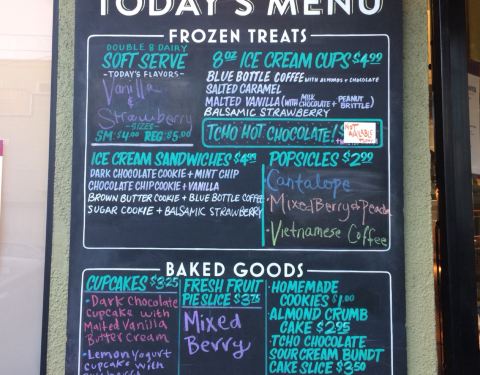 TODAY'S MENU
FROZEN TREATS
DOUBLE 8 DAIRY
SOFT SERVE
-TODAY'S FLAVORS-
Vanilla
&
Strawberry
-SIZES-
SM. $4.00 REG. $5.00
8oz ICE CREAM CUPS $4.00
BLUE BOTTLE COFFEE WITH ALMONDS + CHOCOLATE
SALTED CARAMEL
MALTED VANILLA (WITH MILK CHOCOLATE + PEANUT BRITTLE)
BALSAMIC STRAWBERRY
TCHO HOT CHOCOLATE!
NOT AVAILABLE
ICE CREAM SANDWICHES $4.00
DARK CHOCOLATE COOKIE + MINT CHIP
CHOCOLATE CHIP COOKIE + VANILLA
BROWN BUTTER COOKIE + BLUE BOTTLE COFFEE
SUGAR COOKIE + BALSAMIC STRAWBERRY
POPSICLES $2.00
Cantalope
Mixed Berry + Peach
-Vietnamese Coffee
BAKED GOODS
CUPCAKES $3.25
• Dark Chocolate
cupcake with
Malted Vanilla
Butter Cream
• Lemon Yogurt
cupcake with
FRESH FRUIT
PIE SLICE $3.75
Mixed
Berry
• HOMEMADE
COOKIES $1.00
• ALMOND CRUMB
CAKE $2.95
• TCHO CHOCOLATE
SOUR CREAM BUNDT
CAKE SLICE $3.50